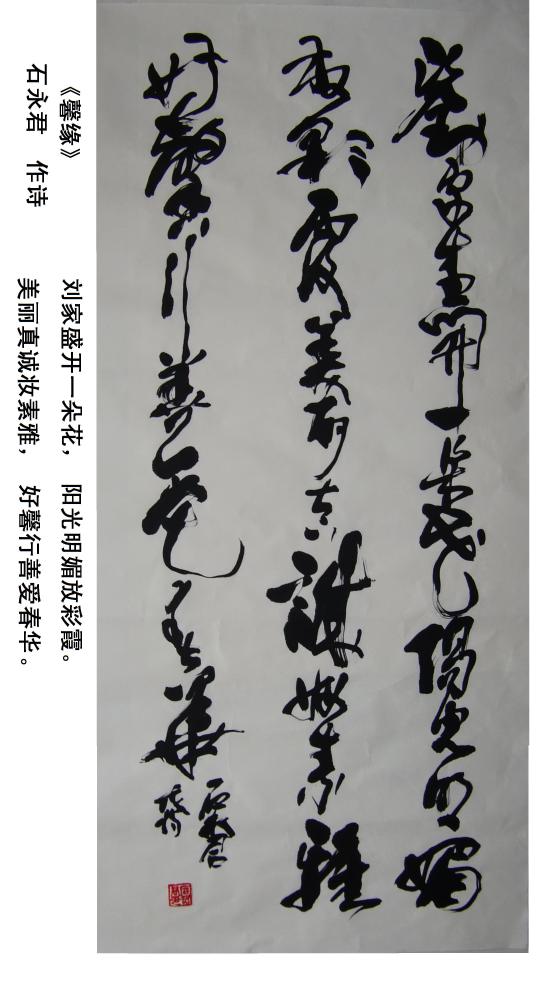 劉家盛開一朵花陽光明媚
放彩霞美丽真誠妝素雅
好馨行善愛春華
石永君
《馨缘》
石永君 作诗
刘家盛开一朵花， 阳光明媚放彩霞。
美丽真诚妆素雅， 好馨行善爱春华。